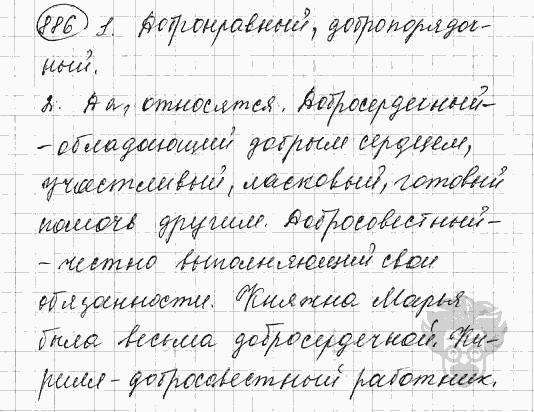 886 1. Добронравный, добропорядоч-
ный.
2. Да, относятся. Добросердечный-
-обладающий добрым сердцем,
участливый, ласковый, готовый
помочь другим. Добросовестный-
-честно выполняющий свои
обязанности. Княжна Марья
была весьма добросердечной. Ки-
рилл-добросовестный работник.